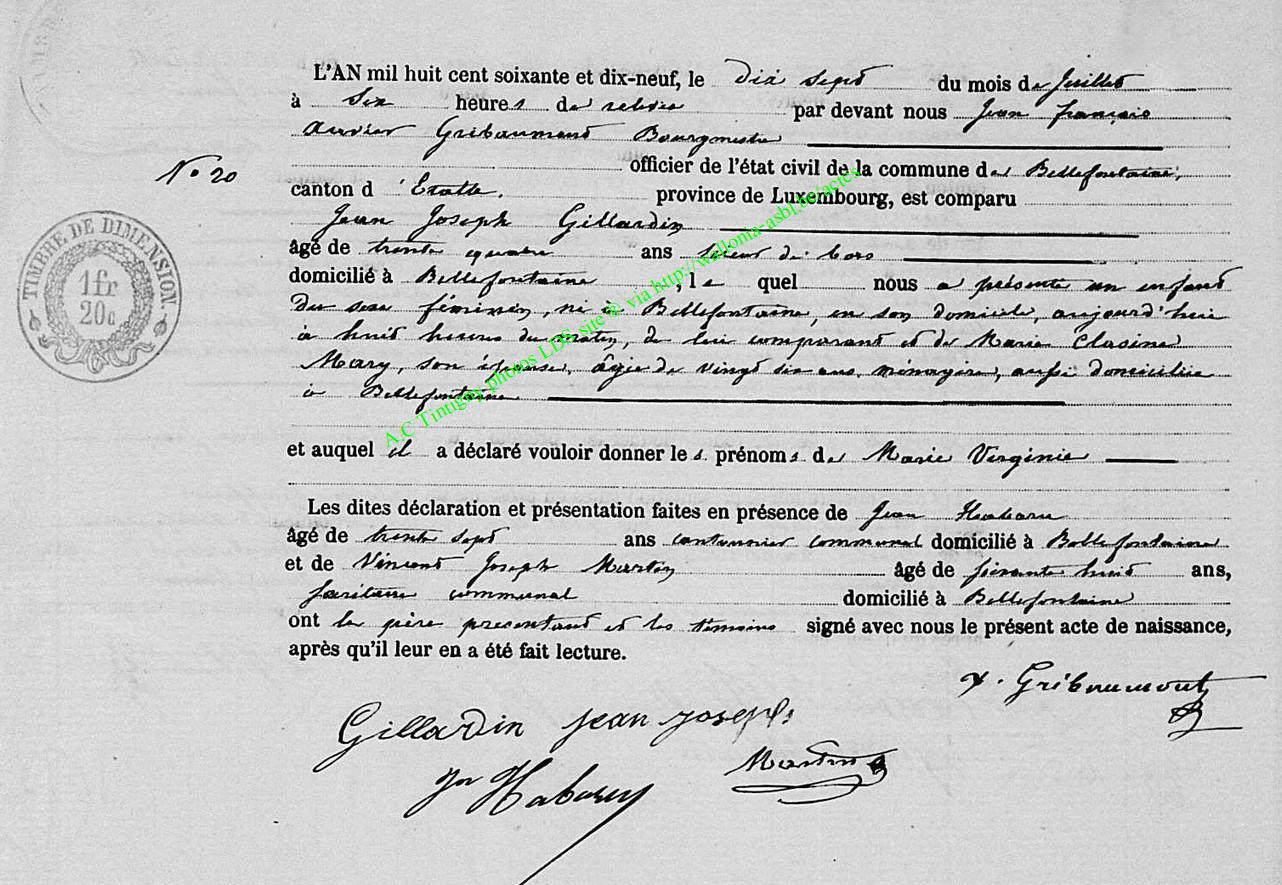 L'AN mil huit cent soixante et dix-neuf, le dix sept du mois de Juillet
à six heures de relevée par devant nous Jean françois
Xavier Gribaumont Bourgmestre
officier de l'état civil de la commune de Bellefontaine,
No 20
canton d'Etalle, province de Luxembourg, est comparu
Jean Joseph Gillardin
âgé de trente quatre ans scieur de bois
domicilié à Bellefontaine, lequel nous a présenté un enfant
du sexe féminin, né à Bellefontaine, en son domicile, aujourd'hui
à huit heures du matin, de lui comparant et de Marie
Mary, son épouse, âgée de vingt six ans, ménagère, aussi domiciliée
à Bellefontaine
et auquel il a déclaré vouloir donner les prénoms de Marie Virginie
Les dites déclaration et présentation faites en présence de Jean
âgé de trente sept ans cantonnier communal domicilié à Bellefontaine
et de Vincent Joseph Martin âgé de soixante huit ans,
communal domicilié à Bellefontaine
ont le père présentant et les témoins signé avec nous le présent acte de naissance,
après qu'il leur en a été fait lecture.
X. Gribaumont
Gillardin jean joseph
Martin
TIMBRE DE DIMENSION.
1fr
20c
A.C Tintigny photos LDS site @ via http://wallonia-asbl.be/actes